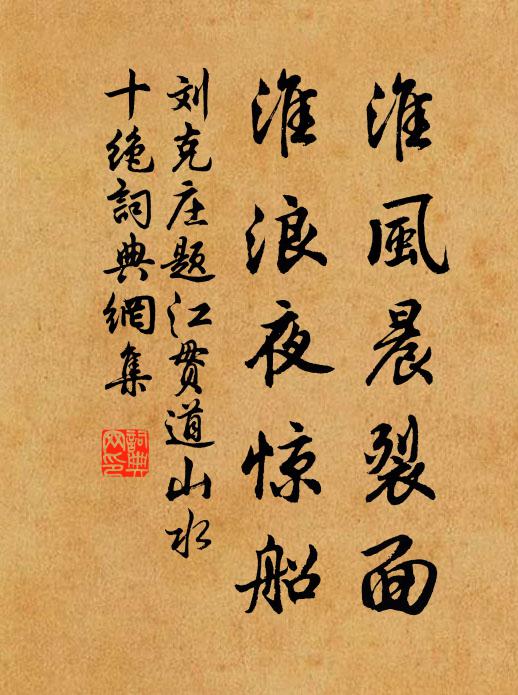 淮風晨裂面
淮浪夜惊船
刘克庄题江贯道山水
十绝詞典網集
詞典
网印